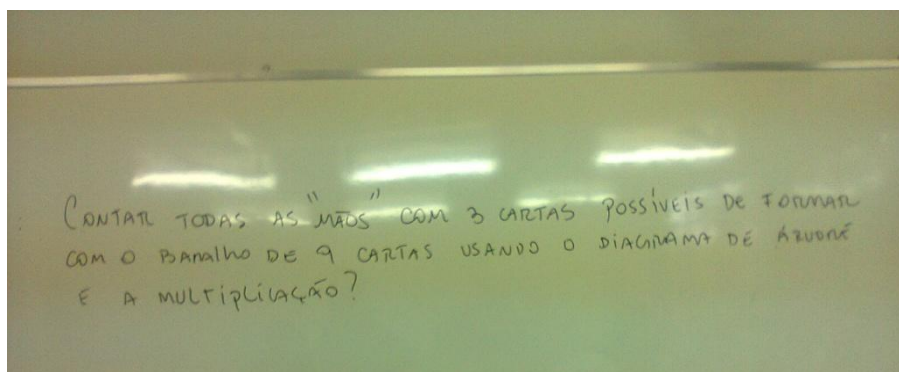 CONTAR TODAS AS "MÃOS" COM 3 CARTAS POSSÍVEIS DE FORMAR
COM O BARALHO DE 9 CARTAS USANDO O DIAGRAMA DE ÁRVORE
E A MULTIPLICAÇÃO?